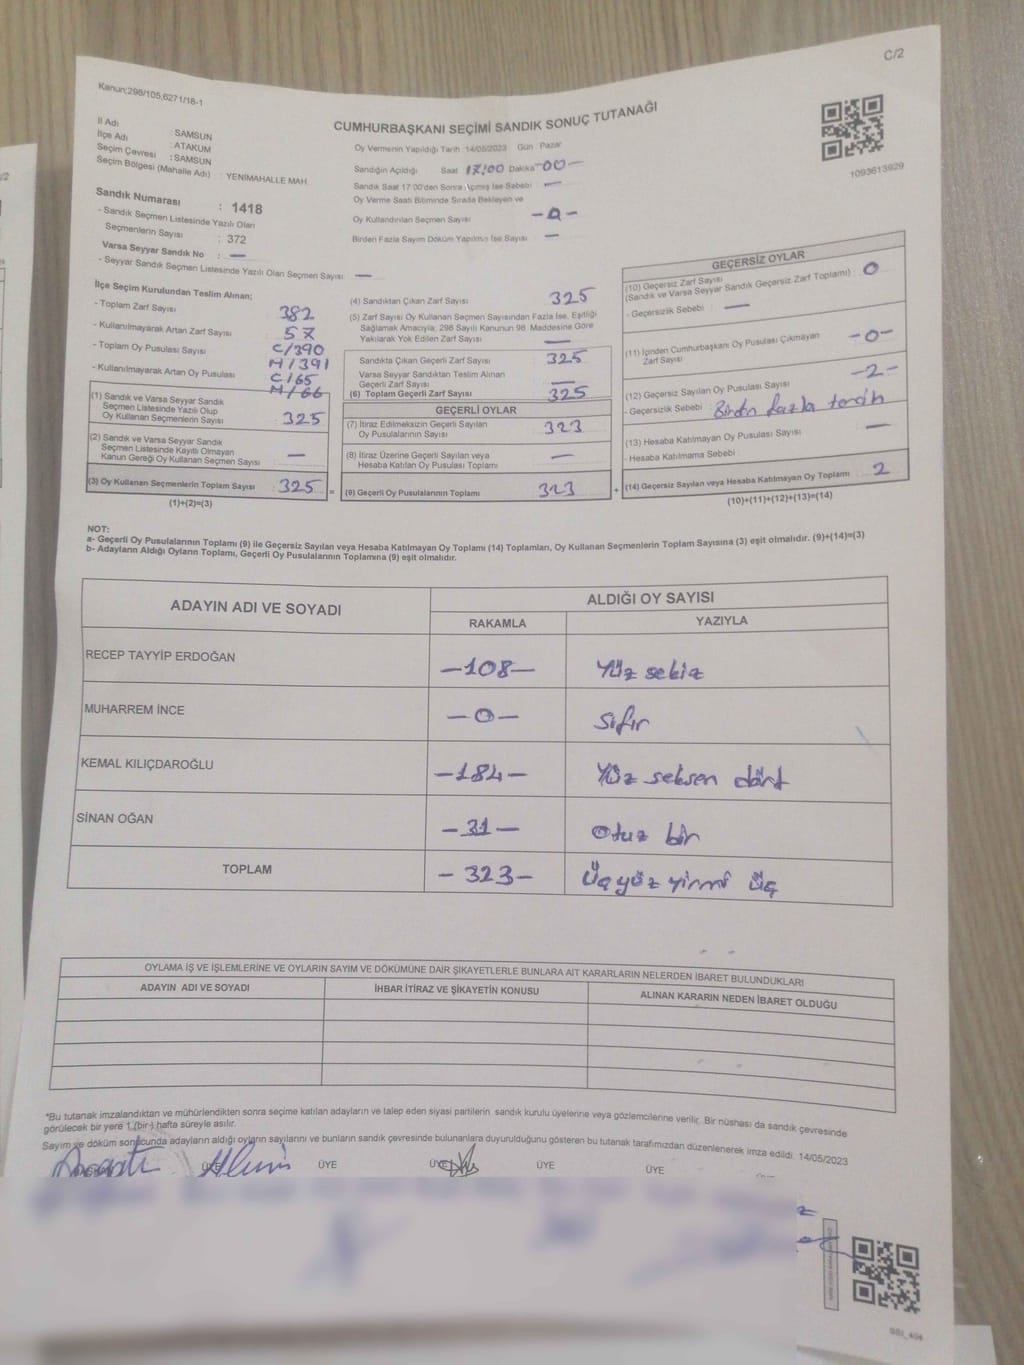 C/2
Kanun;298/105,6271/18-1
CUMHURBAŞKANI SEÇİMİ SANDIK SONUÇ TUTANAĞI
1093613929
İl Adı : SAMSUN
İlçe Adı : ATAKUM
Seçim Çevresi : SAMSUN
Seçim Bölgesi (Mahalle Adı) : YENİMAHALLE MAH.
Sandık Numarası : 1418
- Sandık Seçmen Listesinde Yazılı Olan
Seçmenlerin Sayısı : 372
Varsa Seyyar Sandık No : —
- Seyyar Sandık Seçmen Listesinde Yazılı Olan Seçmen Sayısı: —
Oy Vermenin Yapıldığı Tarih :14/05/2023 Gün : Pazar
Sandığın Açıldığı Saat 17:00 Dakika -00-
Sandık Saat 17:00'den Sonra Açılmış İse Sebebi —
Oy Verme Saati Bitiminde Sırada Bekleyen ve
Oy Kullandırılan Seçmen Sayısı -0-
Birden Fazla Sayım Döküm Yapılmış İse Sayısı —
İlçe Seçim Kurulundan Teslim Alınan;
- Toplam Zarf Sayısı 382
- Kullanılmayarak Artan Zarf Sayısı 57
- Toplam Oy Pusulası Sayısı C/390
M/391
- Kullanılmayarak Artan Oy Pusulası C/65
M/66
(1) Sandık ve Varsa Seyyar Sandık
Seçmen Listesinde Yazılı Olup
Oy Kullanan Seçmenlerin Sayısı 325
(2) Sandık ve Varsa Seyyar Sandık
Seçmen Listesinde Kayıtlı Olmayan
Kanun Gereği Oy Kullanan Seçmen Sayısı —
(3) Oy Kullanan Seçmenlerin Toplam Sayısı 325 =
(1)+(2)=(3)
(4) Sandıktan Çıkan Zarf Sayısı 325
(5) Zarf Sayısı Oy Kullanan Seçmen Sayısından Fazla İse, Eşitliği
Sağlamak Amacıyla, 298 Sayılı Kanunun 98. Maddesine Göre
Yakılarak Yok Edilen Zarf Sayısı —
Sandıkta Çıkan Geçerli Zarf Sayısı 325
Varsa Seyyar Sandıktan Teslim Alınan
Geçerli Zarf Sayısı —
(6) Toplam Geçerli Zarf Sayısı 325
GEÇERLİ OYLAR
(7) İtiraz Edilmeksizin Geçerli Sayılan
Oy Pusulalarının Sayısı 323
(8) İtiraz Üzerine Geçerli Sayılan veya
Hesaba Katılan Oy Pusulası Toplamı —
(9) Geçerli Oy Pusulalarının Toplamı 323 +
GEÇERSİZ OYLAR
(10) Geçersiz Zarf Sayısı
(Sandık ve Varsa Seyyar Sandık Geçersiz Zarf Toplamı) 0
- Geçersizlik Sebebi : —
(11) İçinden Cumhurbaşkanı Oy Pusulası Çıkmayan
Zarf Sayısı -0-
(12) Geçersiz Sayılan Oy Pusulası Sayısı -2-
- Geçersizlik Sebebi : Birden fazla tercih
(13) Hesaba Katılmayan Oy Pusulası Sayısı —
- Hesaba Katılmama Sebebi :
(14) Geçersiz Sayılan veya Hesaba Katılmayan Oy Toplamı 2
(10)+(11)+(12)+(13)=(14)
NOT:
a- Geçerli Oy Pusulalarının Toplamı (9) ile Geçersiz Sayılan veya Hesaba Katılmayan Oy Toplamı (14) Toplamları, Oy Kullanan Seçmenlerin Toplam Sayısına (3) eşit olmalıdır. (9)+(14)=(3)
b- Adayların Aldığı Oyların Toplamı, Geçerli Oy Pusulalarının Toplamına (9) eşit olmalıdır.
ADAYIN ADI VE SOYADI ALDIĞI OY SAYISI
RAKAMLA YAZIYLA
RECEP TAYYİP ERDOĞAN -108- Yüz sekiz
MUHARREM İNCE -0- Sıfır
KEMAL KILIÇDAROĞLU -184- Yüz seksen dört
SİNAN OĞAN -31- Otuz bir
TOPLAM -323- Üçyüz yirmi üç
OYLAMA İŞ VE İŞLEMLERİNE VE OYLARIN SAYIM VE DÖKÜMÜNE DAİR ŞİKAYETLERLE BUNLARA AİT KARARLARIN NELERDEN İBARET BULUNDUKLARI
ADAYIN ADI VE SOYADI İHBAR İTİRAZ VE ŞİKAYETİN KONUSU ALINAN KARARIN NEDEN İBARET OLDUĞU
*Bu tutanak imzalandıktan ve mühürlendikten sonra seçime katılan adayların ve talep eden siyasi partilerin sandık kurulu üyelerine veya gözlemcilerine verilir. Bir nüshası da sandık çevresinde
görülecek bir yere 1 (bir) hafta süreyle asılır.
Sayım ve döküm sonucunda adayların aldığı oyların sayılarını ve bunların sandık çevresinde bulunanlara duyurulduğunu gösteren bu tutanak tarafımızdan düzenlenerek imza edildi. 14/05/2023
ÜYE ÜYE ÜYE ÜYE ÜYE